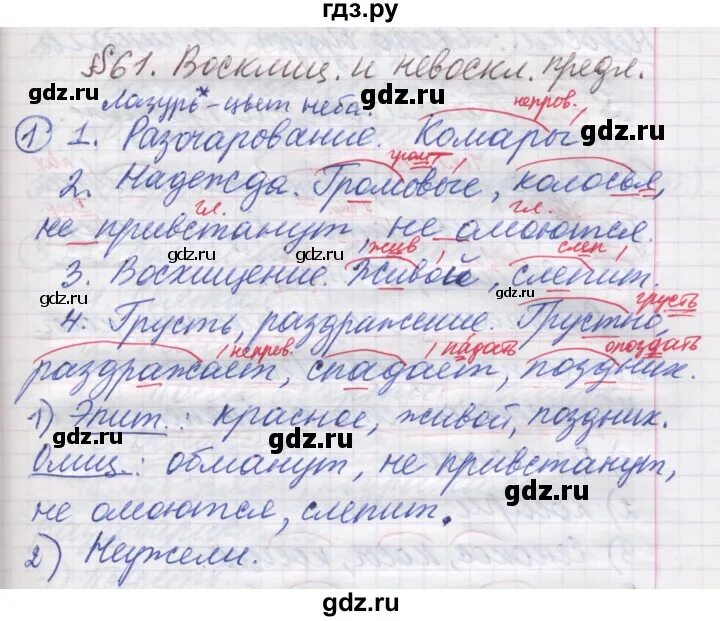 гдз.ру
§61. Восклиц. и невоскл. предл.
Лазурь* - цвет неба.
непров.
① 1. Разочарование. Комары
гром
2. Надежда. Громовые, колосья,
гл. гл.
не привстанут, не омоются.
жив слеп
3. Восхищение. Живой, слепит.
грусть
4. Грусть, раздражение. Грустно,
непров. падать опоздать
раздражает, спадает, поздних.
1) Эпит.: красное, живой, поздних.
Олиц.: обманут, не привстанут,
не омоются, слепит.
2) Неужели.
gdz.ru
gdz.ru
gdz.ru
gdz.ru
gdz.ru
gdz.ru
gdz.ru
gdz.ru
gdz.ru
gdz.ru
gdz.ru
gdz.ru
gdz.ru